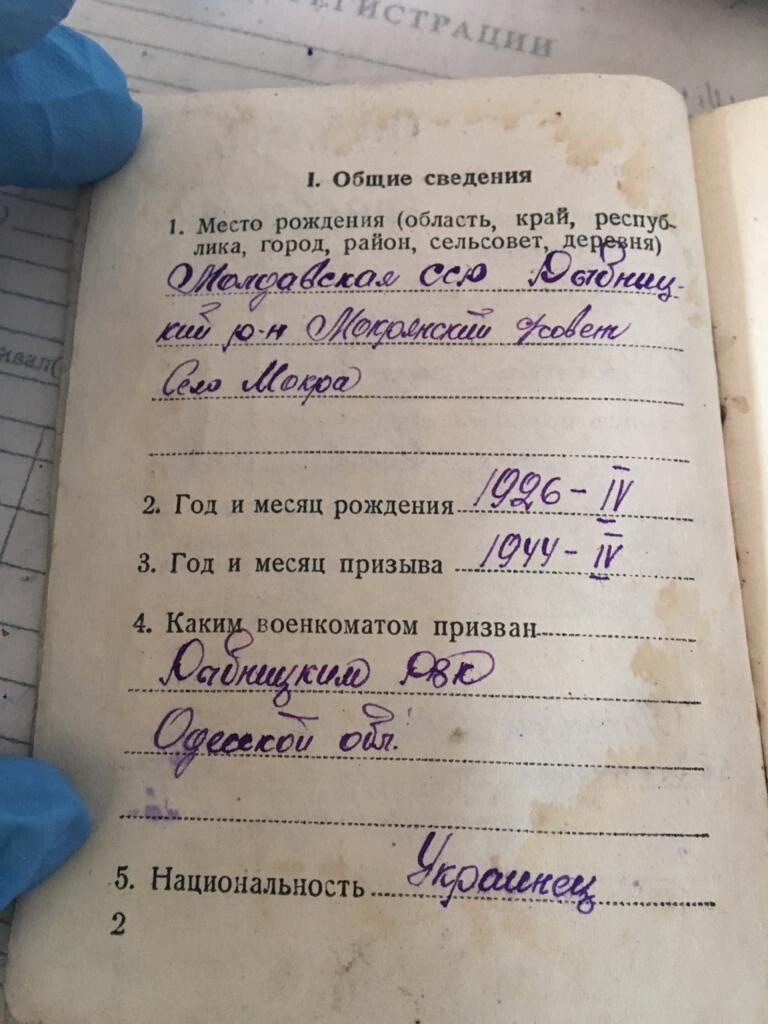 РЕГИСТРАЦИИ
I. Общие сведения
1. Место рождения (область, край, респуб-
лика, город, район, сельсовет, деревня)
Молдавская ССР Рыбниц-
кий р-н Мокрянский с/совет
Село Мокра
2. Год и месяц рождения 1926 - IV
3. Год и месяц призыва 1944 - IV
4. Каким военкоматом призван
Рыбницким РВК
Одесской обл.
5. Национальность Украинец
2